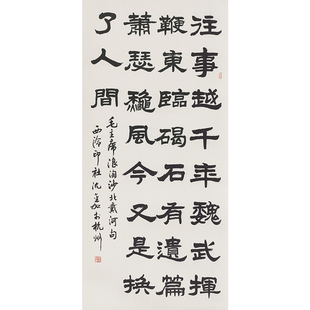 往事越千年魏武揮
鞭東臨碣石有遺篇
蕭瑟龝風今又是換
了人間
毛主席浪淘沙北戴河句
西泠印社沈於杭州